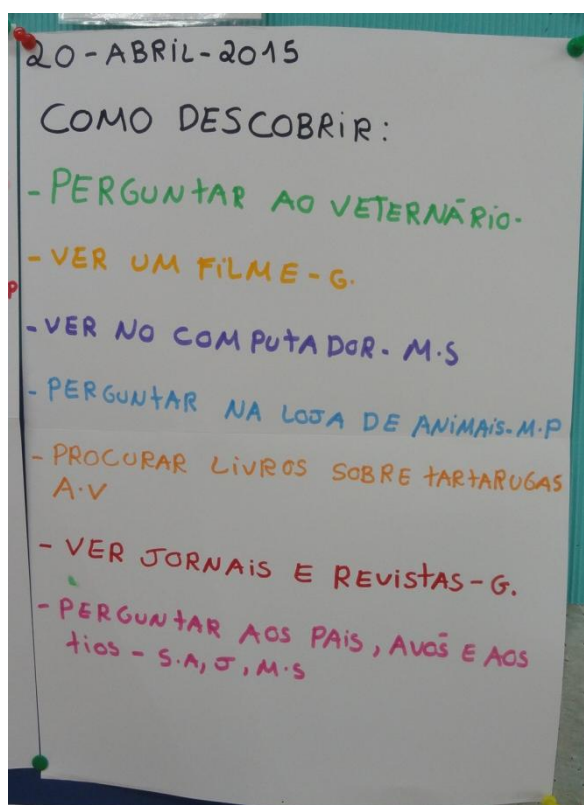 20-ABRIL-2015
COMO DESCOBRIR:
- PERGUNTAR AO VETERNÁRIO-
- VER UM FILME - G.
- VER NO COMPUTADOR - M.S
- PERGUNTAR NA LOJA DE ANIMAIS - M.P
- PROCURAR LIVROS SOBRE TARTARUGAS
A.V
- VER JORNAIS E REVISTAS - G.
- PERGUNTAR AOS PAIS, AVÓS E AOS
TIOS - S.A, J, M.S